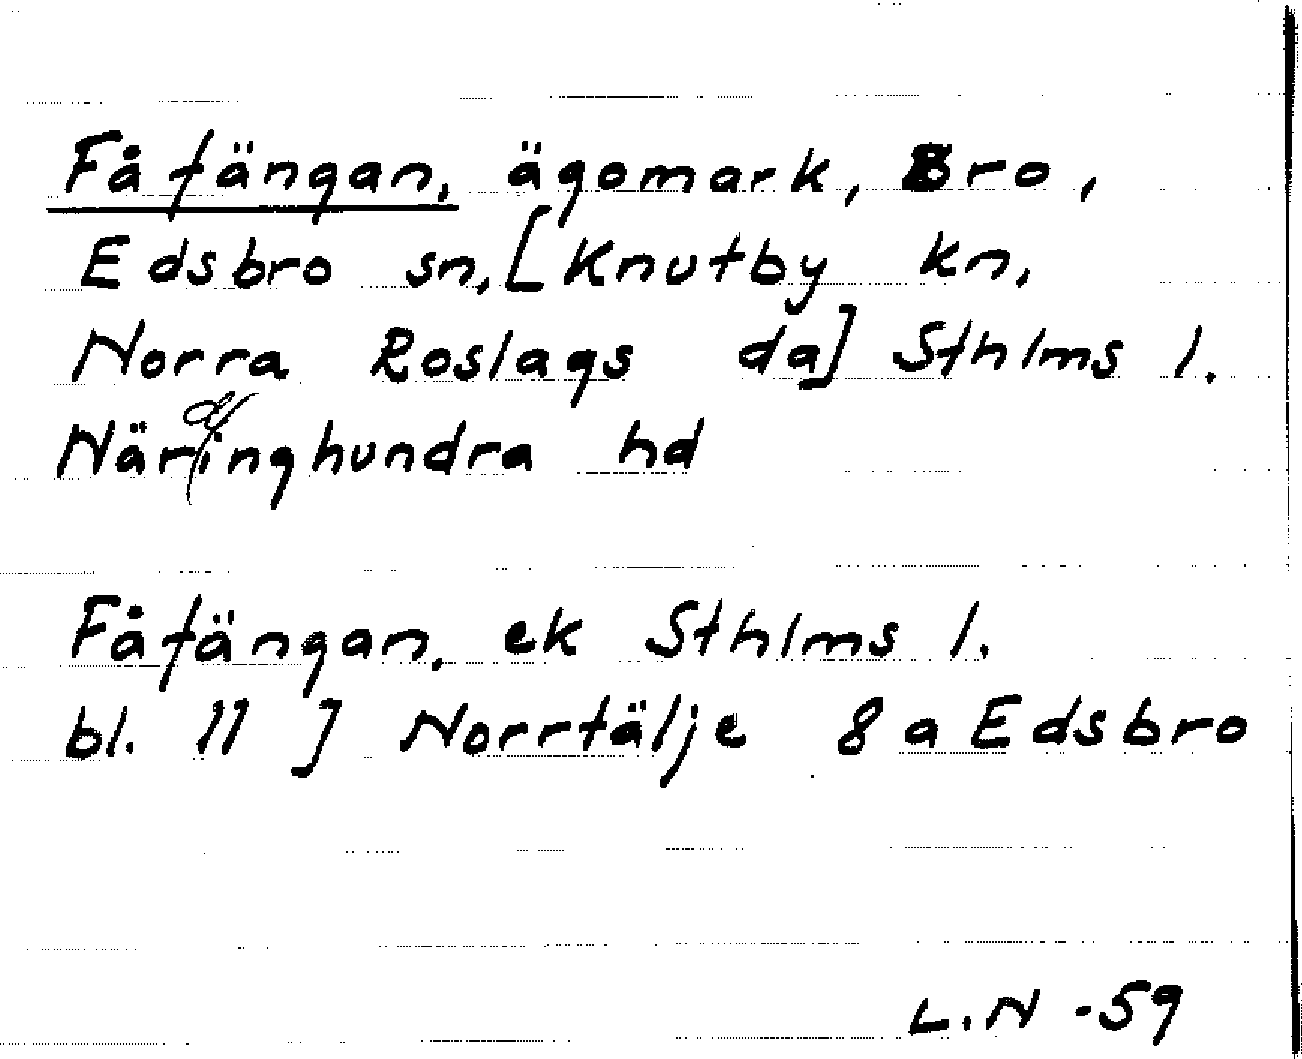 Fåfängan, ägomark, Bro,
Edsbro sn, [Knutby kn,
Norra Roslags da] Sthlms l.
Närdinghundra hd
Fåfängan, ek Sthlms l.
bl. 11 J Norrtälje 8a Edsbro
L.N -59